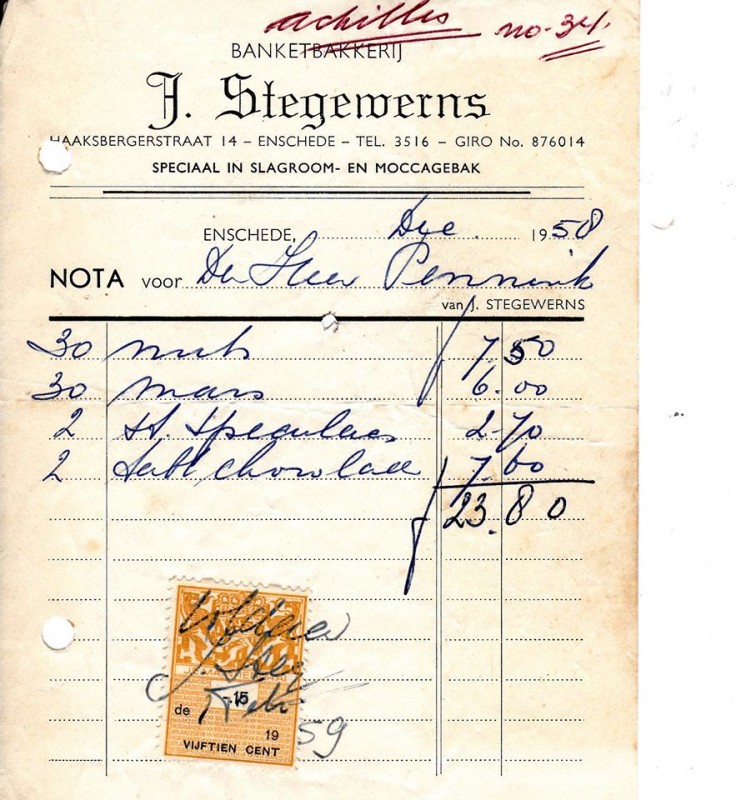 Achilles no. 34.
BANKETBAKKERIJ
J. Stegewerns
HAAKSBERGERSTRAAT 14 – ENSCHEDE – TEL. 3516 – GIRO No. 876014
SPECIAAL IN SLAGROOM- EN MOCCAGEBAK
ENSCHEDE, Dec. 1958
NOTA voor De Heer Pennink
van J. STEGEWERNS
30 nuts 7.50
30 mars 6.00
2 st. speculaas 2.70
2 chocolade 7.60
23.80
Voldaan
J. Steg
-.15
de Feb.
19 59
VIJFTIEN CENT